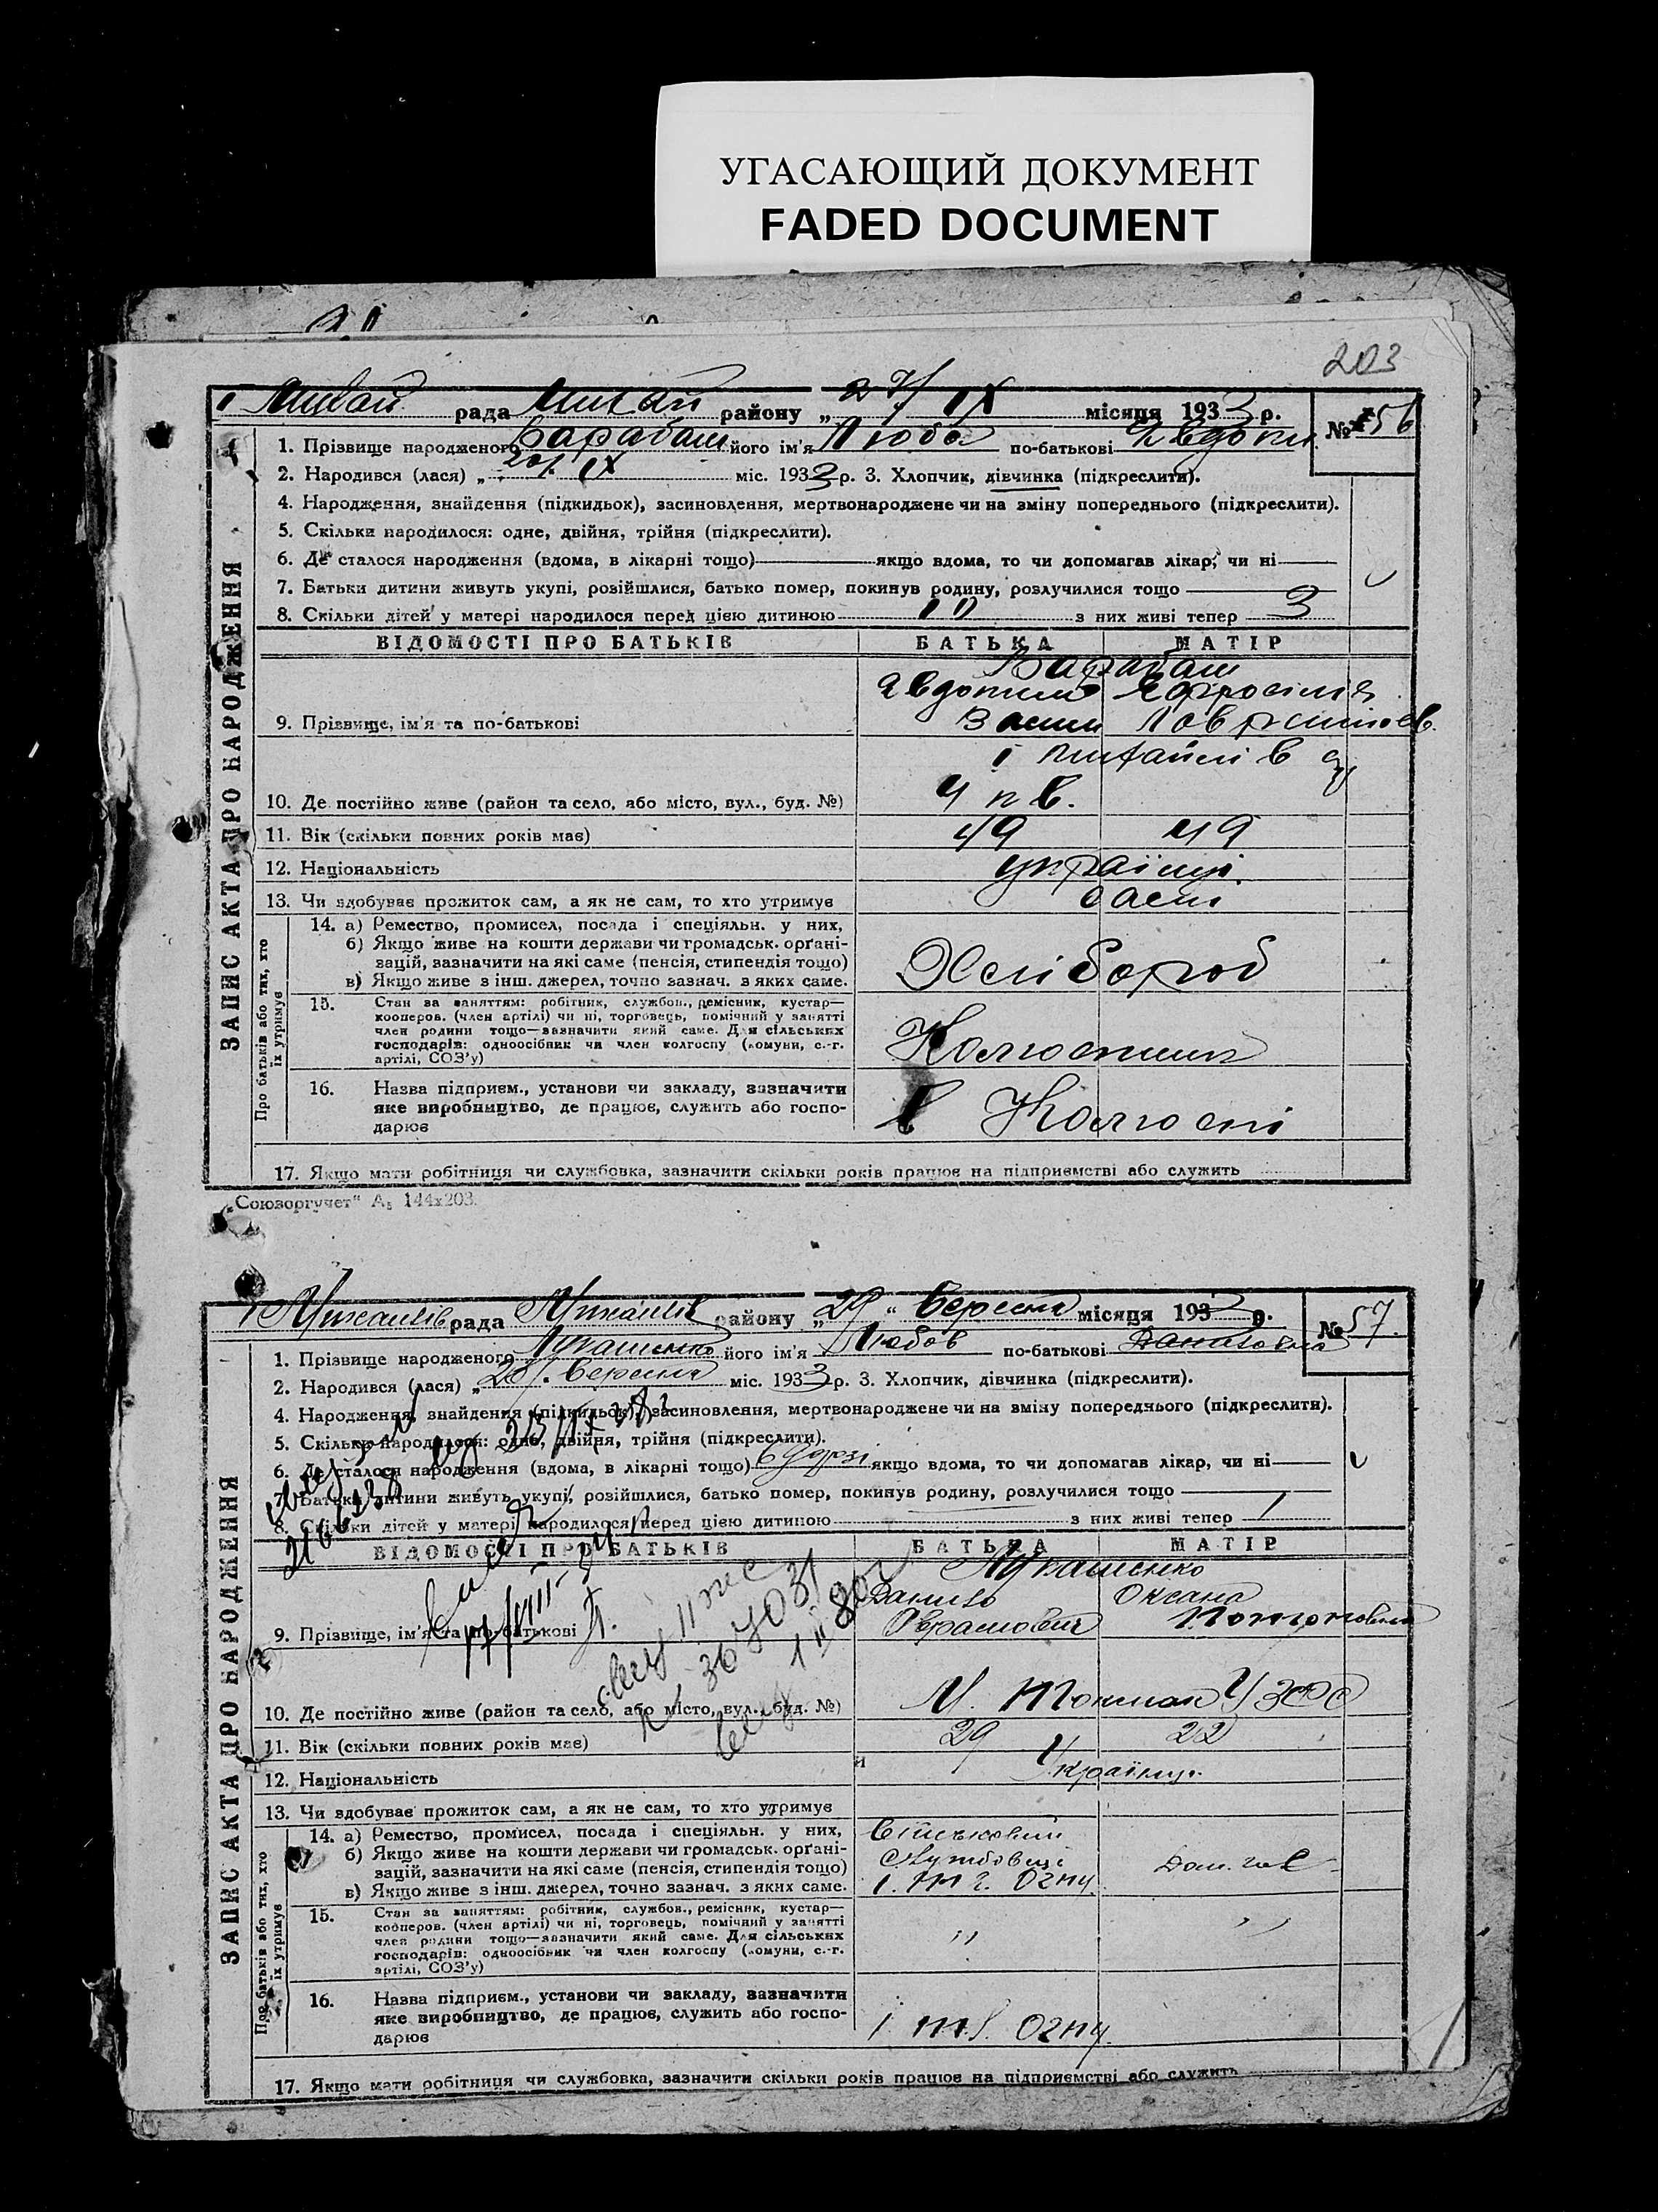 УГАСАЮЩИЙ ДОКУМЕНТ
FADED DOCUMENT
203
рада району „ 27/IX місяця 1933 р. № 56
1. Прізвище народженого Барабаш його ім'я Люба по-батькові
2. Народився (лася) „ 20/IX міс. 1933 р. 3. Хлопчик, дівчинка (підкреслити).
4. Народження, знайдення (підкидьок), засиновлення, мертвонароджене чи на зміну попереднього (підкреслити).
5. Скільки народилося: одне, двійня, трійня (підкреслити).
6. Де сталося народження (вдома, в лікарні тощо) якщо вдома, то чи допомагав лікар, чи ні
7. Батьки дитини живуть укупі, розійшлися, батько помер, покинув родину, розлучилися тощо
8. Скільки дітей у матері народилося перед цією дитиною з них живі тепер 3
ЗАПИС АКТА ПРО НАРОДЖЕННЯ
ВІДОМОСТІ ПРО БАТЬКІВ БАТЬКА МАТІР
Барабаш
9. Прізвище, ім'я та по-батькові
10. Де постійно живе (район та село, або місто, вул., буд. №)
11. Вік (скільки повних років має) 49 49
12. Національність українці
13. Чи здобуває прожиток сам, а як не сам, то хто утримує самі
Про батьків або тих, хто їх утримує
14. а) Ремество, промисел, посада і спеціяльн. у них,
б) Якщо живе на кошти держави чи громадськ. орґані-
зацій, зазначити на які саме (пенсія, стипендія тощо) Хлібороб
в) Якщо живе з інш. джерел, точно зазнач. з яких саме.
15. Стан за заняттям: робітник, службов., ремісник, кустар—
кооперов. (член артілі) чи ні, торговець, помічний у занятті
член родини тощо—зазначити який саме. Для сільських
господарів: одноосібник чи член колгоспу (комуни, с.-г. Колгоспник
артілі, СОЗ'у)
16. Назва підприєм., установи чи закладу, зазначити
яке виробництво, де працює, служить або госпо- в Колгоспі
дарює
17. Якщо мати робітниця чи службовка, зазначити скільки років працює на підприємстві або служить
„Союзоргучет" А₅ 144х203.
рада району „29" Вересня місяця 1933 р. № 57.
1. Прізвище народженого Лукашенко його ім'я Любов по-батькові Даниловна
2. Народився (лася) „ 20/. вересня міс. 1933 р. 3. Хлопчик, дівчинка (підкреслити).
4. Народження, знайдення (підкидьок), засиновлення, мертвонароджене чи на зміну попереднього (підкреслити).
5. Скільки народилося: одне, двійня, трійня (підкреслити).
6. Де сталося народження (вдома, в лікарні тощо) якщо вдома, то чи допомагав лікар, чи ні
7. Батьки дитини живуть укупі, розійшлися, батько помер, покинув родину, розлучилися тощо
8. Скільки дітей у матері народилося перед цією дитиною з них живі тепер 1
ЗАПИС АКТА ПРО НАРОДЖЕННЯ
ВІДОМОСТІ ПРО БАТЬКІВ БАТЬКА МАТІР
Лукашенко
Данило Оксана
9. Прізвище, ім'я та по-батькові
10. Де постійно живе (район та село, або місто, вул., буд. №)
11. Вік (скільки повних років має) 29 22
12. Національність Українці
13. Чи здобуває прожиток сам, а як не сам, то хто утримує
Про батьків або тих, хто їх утримує
14. а) Ремество, промисел, посада і спеціяльн. у них, Військовий
б) Якщо живе на кошти держави чи громадськ. орґані- Службовець
зацій, зазначити на які саме (пенсія, стипендія тощо)
в) Якщо живе з інш. джерел, точно зазнач. з яких саме.
15. Стан за заняттям: робітник, службов., ремісник, кустар—
кооперов. (член артілі) чи ні, торговець, помічний у занятті
член родини тощо—зазначити який саме. Для сільських
господарів: одноосібник чи член колгоспу (комуни, с.-г.
артілі, СОЗ'у)
16. Назва підприєм., установи чи закладу, зазначити
яке виробництво, де працює, служить або госпо-
дарює
17. Якщо мати робітниця чи службовка, зазначити скільки років працює на підприємстві або служить